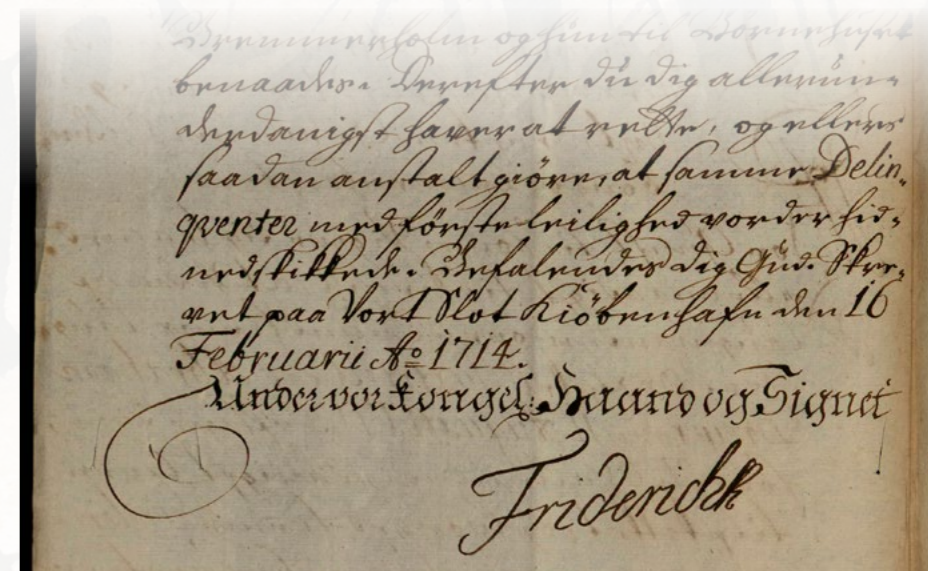 Bremmerholm og hun til Bornehuset
benaades. Derefter du dig allerun=
derdanigst haver at rette, og ellers
saadan anstalt giöre, at samme Delin=
qventer med förste leilighed vorder hid=
nedskikkede. Befalendes dig Gud. Skre=
vet paa Vort Slot Kiöbenhafn den 16
Februarii Ao 1714.
Under vor Kongel: Haand og Signet
Friderich